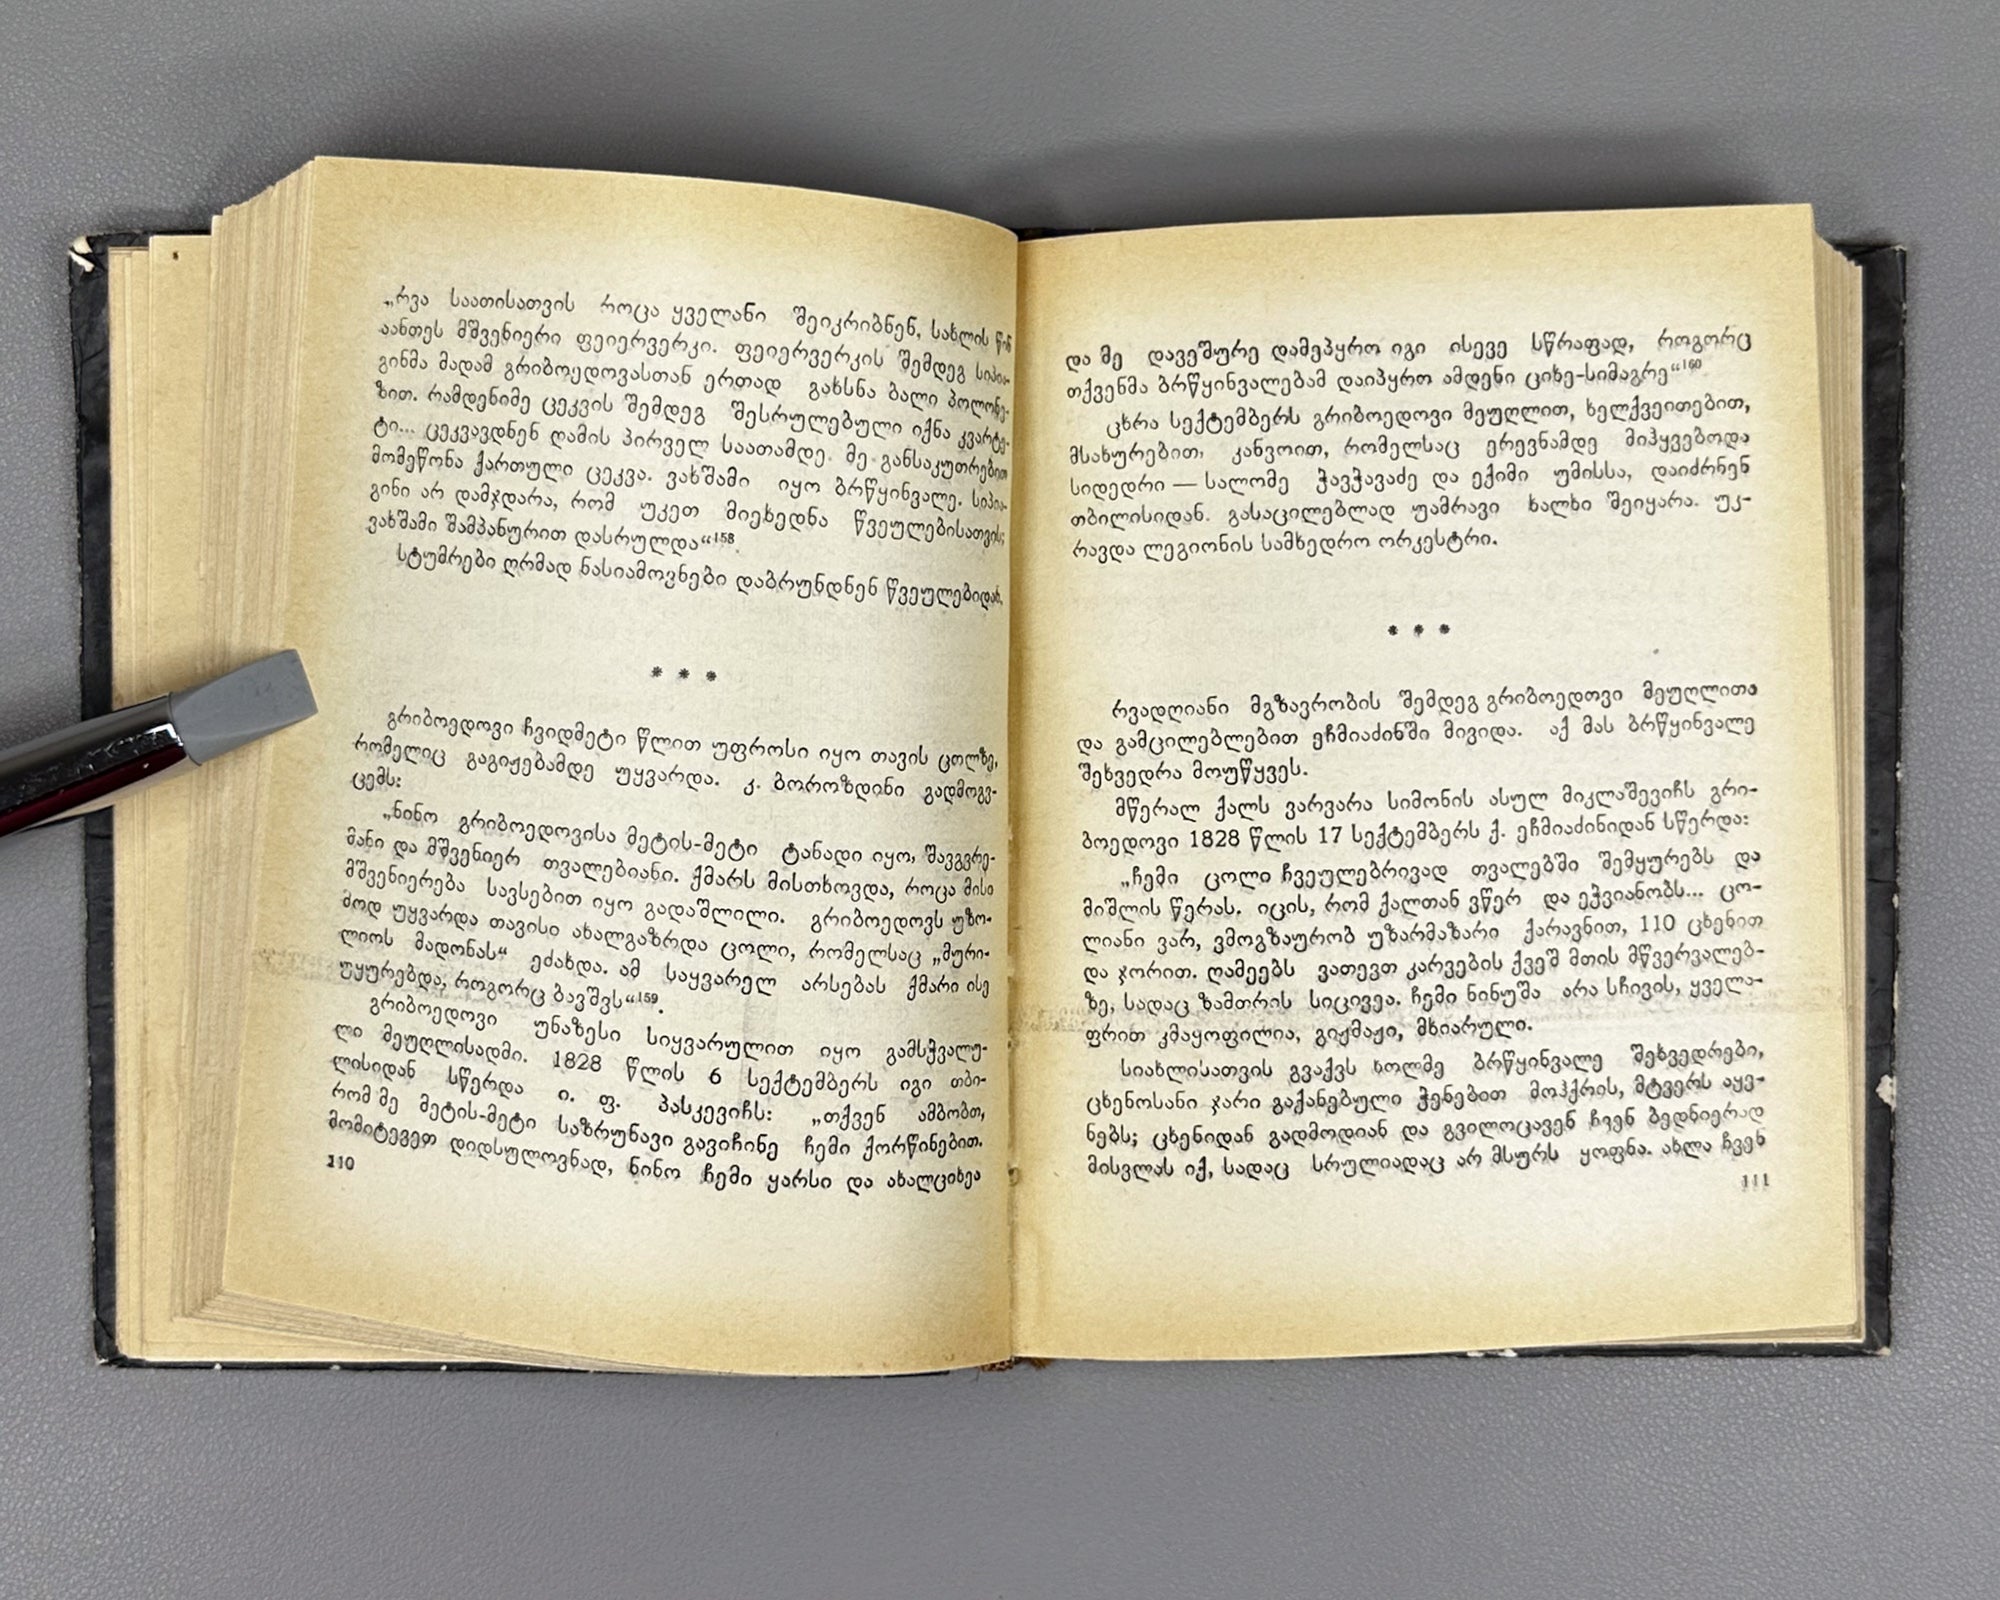 „რვა საათისათვის როცა ყველანი შეიკრიბნენ, სახლის წინ
აანთეს მშვენიერი ფეიერვერკი. ფეიერვერკის შემდეგ სიპია-
გინმა მადამ გრიბოედოვასთან ერთად გახსნა ბალი პოლონე-
ზით. რამდენიმე ცეკვის შემდეგ შესრულებული იქნა კვარტე-
ტი... ცეკვავდნენ ღამის პირველ საათამდე. მე განსაკუთრებით
მომეწონა ქართული ცეკვა. ვახშამი იყო ბრწყინვალე. სიპია-
გინი არ დამჯდარა, რომ უკეთ მიეხედნა წვეულებისათვის;
ვახშამი შამპანურით დასრულდა“158.
სტუმრები ღრმად ნასიამოვნები დაბრუნდნენ წვეულებიდან.
* * *
გრიბოედოვი ჩვიდმეტი წლით უფროსი იყო თავის ცოლზე,
რომელიც გაგიჟებამდე უყვარდა. კ. ბოროზდინი გადმოგვ-
ცემს:
„ნინო გრიბოედოვისა მეტის-მეტი ტანადი იყო, შავგვრე-
მანი და მშვენიერ თვალებიანი. ქმარს მისთხოვდა, როცა მისი
მშვენიერება სავსებით იყო გადაშლილი. გრიბოედოვს უზო-
მოდ უყვარდა თავისი ახალგაზრდა ცოლი, რომელსაც „მური-
ლიოს მადონას“ ეძახდა. ამ საყვარელ არსებას ქმარი ისე
უყურებდა, როგორც ბავშვს“159.
გრიბოედოვი უნაზესი სიყვარულით იყო გამსჭვალუ-
ლი მეუღლისადმი. 1828 წლის 6 სექტემბერს იგი თბი-
ლისიდან სწერდა ი. ფ. პასკევიჩს: „თქვენ ამბობთ,
რომ მე მეტის-მეტი საზრუნავი გავიჩინე ჩემი ქორწინებით.
მომიტევეთ დიდსულოვნად, ნინო ჩემი ყარსი და ახალციხეა
110
და მე დავეშურე დამეპყრო იგი ისევე სწრაფად, როგორც
თქვენმა ბრწყინვალებამ დაიპყრო ამდენი ციხე-სიმაგრე“160
ცხრა სექტემბერს გრიბოედოვი მეუღლით, ხელქვეითებით,
მსახურებით, კანვოით, რომელსაც ერევნამდე მიჰყვებოდა
სიდედრი — სალომე ჭავჭავაძე და ექიმი უმისსა, დაიძრნენ
თბილისიდან. გასაცილებლად უამრავი ხალხი შეიყარა. უკ-
რავდა ლეგიონის სამხედრო ორკესტრი.
* * *
რვადღიანი მგზავრობის შემდეგ გრიბოედოვი მეუღლითა
და გამცილებლებით ეჩმიაძინში მივიდა. აქ მას ბრწყინვალე
შეხვედრა მოუწყვეს.
მწერალ ქალს ვარვარა სიმონის ასულ მიკლაშევიჩს გრი-
ბოედოვი 1828 წლის 17 სექტემბერს ქ. ეჩმიაძინიდან სწერდა:
„ჩემი ცოლი ჩვეულებრივად თვალებში შემყურებს და
მიშლის წერას. იცის, რომ ქალთან ვწერ და ეჭვიანობს... ცო-
ლიანი ვარ, ვმოგზაურობ უზარმაზარი ქარავნით, 110 ცხენით
და ჯორით. ღამეებს ვათევთ კარვების ქვეშ მთის მწვერვალებ-
ზე, სადაც ზამთრის სიცივეა. ჩემი ნინუშა არა სჩივის, ყველა-
ფრით კმაყოფილია, გიჟმაჟი, მხიარული.
სიახლისათვის გვაქვს ხოლმე ბრწყინვალე შეხვედრები,
ცხენოსანი ჯარი გაქანებული ჭენებით მოჰქრის, მტვერს აყე-
ნებს; ცხენიდან გადმოდიან და გვილოცავენ ჩვენ ბედნიერად
მისვლას იქ, სადაც სრულიადაც არ მსურს ყოფნა. ახლა ჩვენ
111